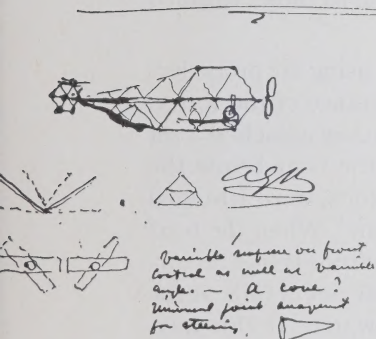 AGB
variable surface on front
control as well as variable
angle. — A cone?
Universal joint arrangement
for steering.